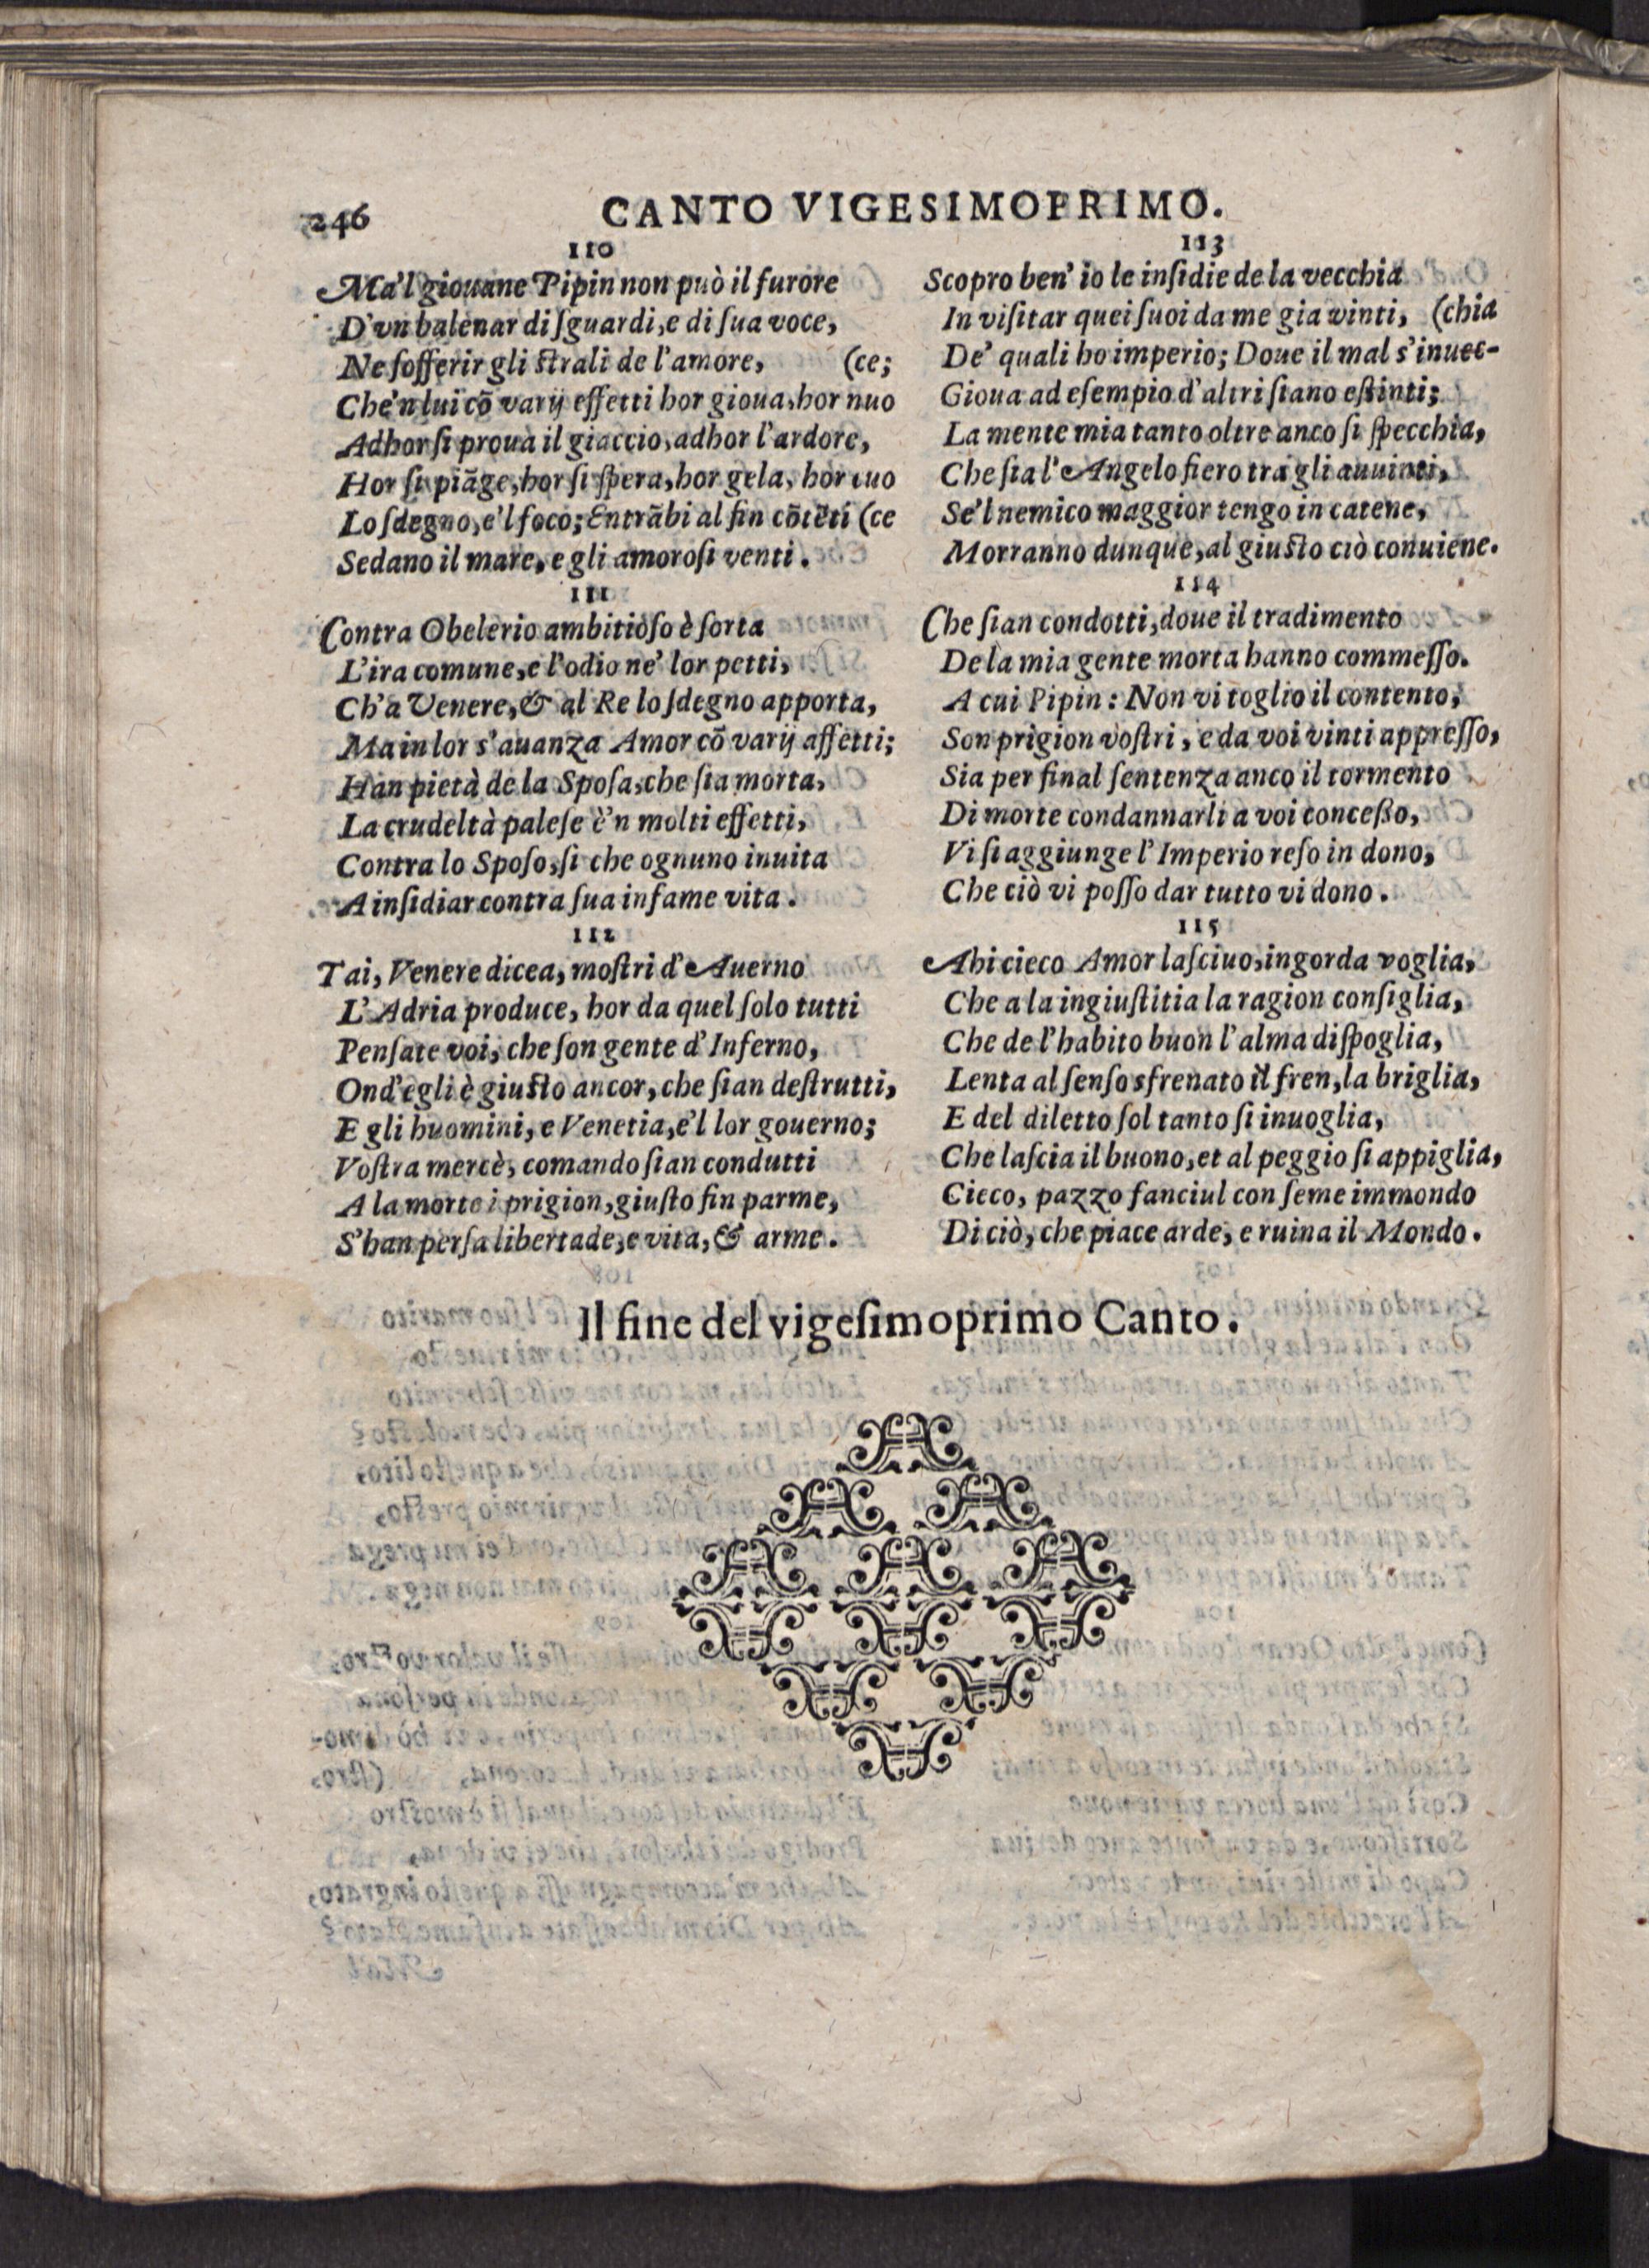 246
CANTO VIGESIMOPRIMO.
110
Ma'l giouane Pipin non può il furore
D'vn balenar di ſguardi, e di ſua voce,
Ne ſofferir gli strali de l'amore, (ce;
Che'n lui cō varij effetti hor gioua, hor nuo
Adhor ſi proua il giaccio, adhor l'ardore,
Hor ſi piāge, hor ſi ſpera, hor gela, hor cuo
Lo ſdegno, e'l foco; Entrābi al fin cōtēti (ce
Sedano il mare, e gli amoroſi venti.
111
Contra Obelerio ambitioſo è ſorta
L'ira comune, e l'odio ne' lor petti,
Ch'a Venere, & al Re lo ſdegno apporta,
Ma in lor s'auanza Amor cō varij affetti;
Han pietà de la Spoſa, che ſia morta,
La crudeltà paleſe è'n molti effetti,
Contra lo Spoſo, ſi che ognuno inuita
A inſidiar contra ſua infame vita.
112
Tai, Venere dicea, moſtri d'Auerno
L'Adria produce, hor da quel ſolo tutti
Penſate voi, che ſon gente d'Inferno,
Ond'egli è giusto ancor, che ſian deſtrutti,
E gli huomini, e Venetia, e'l lor gouerno;
Voſtra mercè, comando ſian condutti
A la morte i prigion, giuſto fin parme,
S'han perſa libertade, e vita, & arme.
113
Scopro ben' io le inſidie de la vecchia
In viſitar quei ſuoi da me gia vinti, (chia
De' quali ho imperio; Doue il mal s'inuec-
Gioua ad eſempio d'altri ſiano eſtinti;
La mente mia tanto oltre anco ſi ſpecchia,
Che ſia l'Angelo fiero tra gli auuinti,
Se'l nemico maggior tengo in catene,
Morranno dunque, al giusto ciò conuiene.
114
Che ſian condotti, doue il tradimento
De la mia gente morta hanno commeſſo.
A cui Pipin: Non vi toglio il contento,
Son prigion voſtri, e da voi vinti appreſſo,
Sia per final ſentenza anco il tormento
Di morte condannarli a voi conceßo,
Vi ſi aggiunge l'Imperio reſo in dono,
Che ciò vi poſſo dar tutto vi dono.
115
Ahi cieco Amor laſciuo, ingorda voglia,
Che a la ingiuſtitia la ragion conſiglia,
Che de l'habito buon l'alma diſpoglia,
Lenta al ſenſo sfrenato il fren, la briglia,
E del diletto ſol tanto ſi inuoglia,
Che laſcia il buono, et al peggio ſi appiglia,
Cieco, pazzo fanciul con ſeme immondo
Di ciò, che piace arde, e ruina il Mondo.
Il fine del vigeſimoprimo Canto.